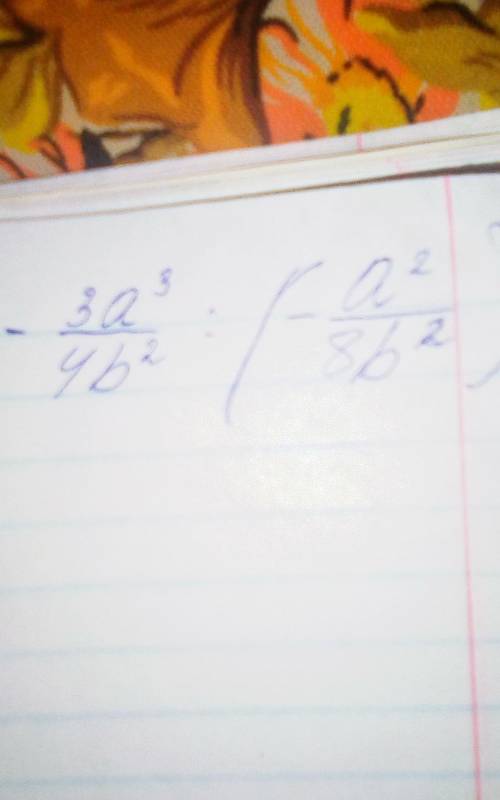 - 3a³/4b² : (- a²/8b²)